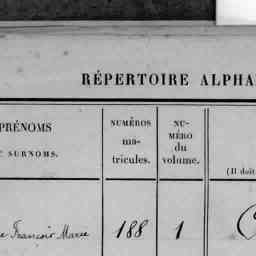 RÉPERTOIRE ALPHA
PRÉNOMS
SURNOMS.
NUMÉROS
ma-
tricules.
NU-
MÉRO
du
volume.
(Il doit
François Marie 188 1